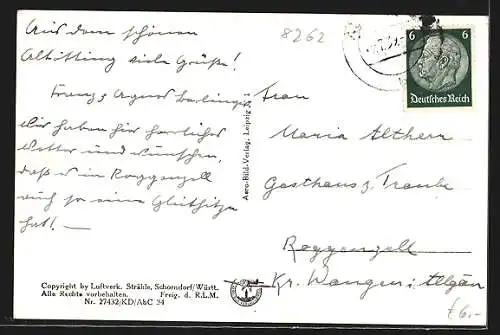 Aus dem schönen
Altötting viele Grüße!
Franz & Agnes
Wir haben hier herrliches
Wetter und wünschen,
daß es in Roggenzell
auch so eine Gluthitze
hat! –
8262
6 6
Deutsches Reich
Frau
Maria Altherr
Gasthaus z. Traube
Roggenzell
Kr. Wangen i. Allgäu
Aero-Bild-Verlag, Leipzig
Copyright by Luftverk. Strähle, Schorndorf/Württ.
Alle Rechte vorbehalten. Freig. d. R.L.M.
Nr. 27432/KD/A&C 34
£6.-